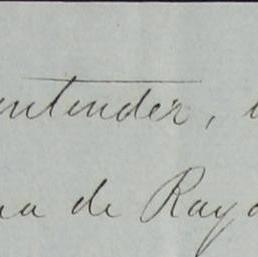 entender,
na de Rayo